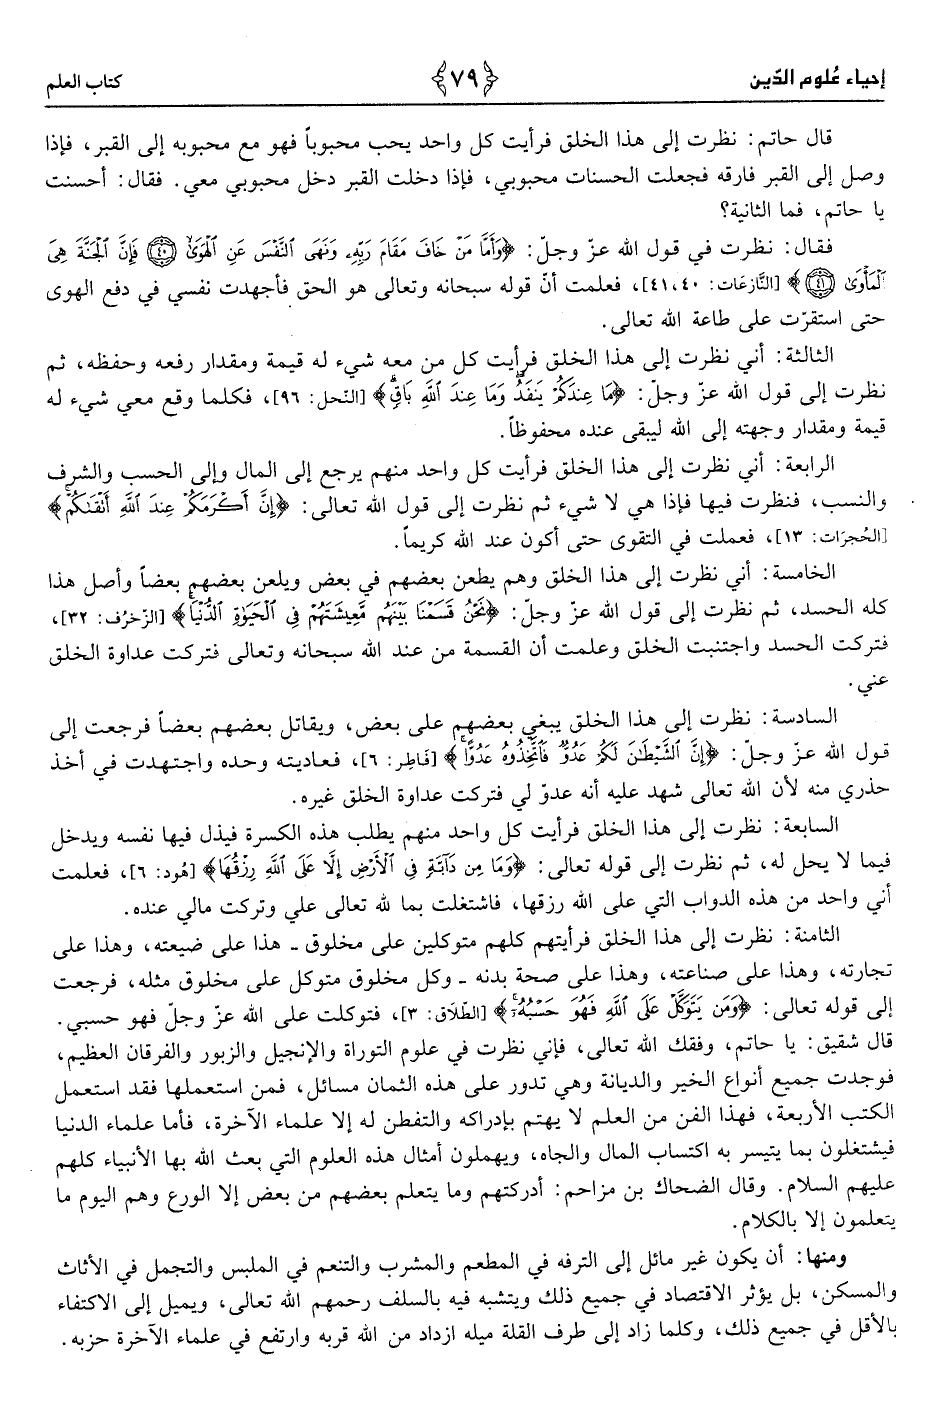 إحياء علوم الدّين ﴿٧٩﴾ كتاب العلم
قال حاتم: نظرت إلى هذا الخلق فرأيت كل واحد يحب محبوباً فهو مع محبوبه إلى القبر، فإذا
وصل إلى القبر فارقه فجعلت الحسنات محبوبي، فإذا دخلت القبر دخل محبوبي معي. فقال: أحسنت
يا حاتم، فما الثانية؟
فقال: نظرت في قول الله عزّ وجلّ: ﴿وَأَمَّا مَنْ خَافَ مَقَامَ رَبِّهِۦ وَنَهَى ٱلنَّفْسَ عَنِ ٱلْهَوَىٰ ۝٤٠ فَإِنَّ ٱلْجَنَّةَ هِىَ
ٱلْمَأْوَىٰ ۝٤١﴾ [النَّازعَات: ٤٠،٤١]، فعلمت أنّ قوله سبحانه وتعالى هو الحق فأجهدت نفسي في دفع الهوى
حتى استقرّت على طاعة الله تعالى.
الثالثة: أني نظرت إلى هذا الخلق فرأيت كل من معه شيء له قيمة ومقدار رفعه وحفظه، ثم
نظرت إلى قول الله عزّ وجلّ: ﴿مَا عِندَكُمْ يَنفَدُ وَمَا عِندَ ٱللَّهِ بَاقٍۗ﴾ [النّحل: ٩٦]، فكلما وقع معي شيء له
قيمة ومقدار وجهته إلى الله ليبقى عنده محفوظاً.
الرابعة: أني نظرت إلى هذا الخلق فرأيت كل واحد منهم يرجع إلى المال وإلى الحسب والشرف
والنسب، فنظرت فيها فإذا هي لا شيء ثم نظرت إلى قول الله تعالى: ﴿إِنَّ أَكْرَمَكُمْ عِندَ ٱللَّهِ أَتْقَىٰكُمْۚ﴾
[الحُجرَات: ١٣]، فعملت في التقوى حتى أكون عند الله كريماً.
الخامسة: أني نظرت إلى هذا الخلق وهم يطعن بعضهم في بعض ويلعن بعضهم بعضاً وأصل هذا
كله الحسد، ثم نظرت إلى قول الله عزّ وجلّ: ﴿نَحْنُ قَسَمْنَا بَيْنَهُم مَّعِيشَتَهُمْ فِى ٱلْحَيَوٰةِ ٱلدُّنْيَاۚ﴾ [الزّخرُف: ٣٢]،
فتركت الحسد واجتنبت الخلق وعلمت أن القسمة من عند الله سبحانه وتعالى فتركت عداوة الخلق
عني.
السادسة: نظرت إلى هذا الخلق يبغي بعضهم على بعض، ويقاتل بعضهم بعضاً فرجعت إلى
قول الله عزّ وجلّ: ﴿إِنَّ ٱلشَّيْطَٰنَ لَكُمْ عَدُوٌّ فَٱتَّخِذُوهُ عَدُوًّاۚ﴾ [فَاطِر: ٦]، فعاديته وحده واجتهدت في أخذ
حذري منه لأن الله تعالى شهد عليه أنه عدوّ لي فتركت عداوة الخلق غيره.
السابعة: نظرت إلى هذا الخلق فرأيت كل واحد منهم يطلب هذه الكسرة فيذل فيها نفسه ويدخل
فيما لا يحل له، ثم نظرت إلى قوله تعالى: ﴿وَمَا مِن دَآبَّةٍ فِى ٱلْأَرْضِ إِلَّا عَلَى ٱللَّهِ رِزْقُهَا﴾ [هُود: ٦]، فعلمت
أني واحد من هذه الدواب التي على الله رزقها، فاشتغلت بما لله تعالى علي وتركت مالي عنده.
الثامنة: نظرت إلى هذا الخلق فرأيتهم كلهم متوكلين على مخلوق ـ هذا على ضيعته، وهذا على
تجارته، وهذا على صناعته، وهذا على صحة بدنه ـ وكل مخلوق متوكل على مخلوق مثله، فرجعت
إلى قوله تعالى: ﴿وَمَن يَتَوَكَّلْ عَلَى ٱللَّهِ فَهُوَ حَسْبُهُۥٓۚ﴾ [الطّلَاق: ٣]، فتوكلت على الله عزّ وجلّ فهو حسبي.
قال شقيق: يا حاتم، وفقك الله تعالى، فإني نظرت في علوم التوراة والإنجيل والزبور والفرقان العظيم،
فوجدت جميع أنواع الخير والديانة وهي تدور على هذه الثمان مسائل، فمن استعملها فقد استعمل
الكتب الأربعة، فهذا الفن من العلم لا يهتم بإدراكه والتفطن له إلا علماء الآخرة، فأما علماء الدنيا
فيشتغلون بما يتيسر به اكتساب المال والجاه، ويهملون أمثال هذه العلوم التي بعث الله بها الأنبياء كلهم
عليهم السلام. وقال الضحاك بن مزاحم: أدركتهم وما يتعلم بعضهم من بعض إلا الورع وهم اليوم ما
يتعلمون إلا بالكلام.
ومنها: أن يكون غير مائل إلى الترفه في المطعم والمشرب والتنعم في الملبس والتجمل في الأثاث
والمسكن، بل يؤثر الاقتصاد في جميع ذلك ويتشبه فيه بالسلف رحمهم الله تعالى، ويميل إلى الاكتفاء
بالأقل في جميع ذلك، وكلما زاد إلى طرف القلة ميله ازداد من الله قربه وارتفع في علماء الآخرة حزبه.